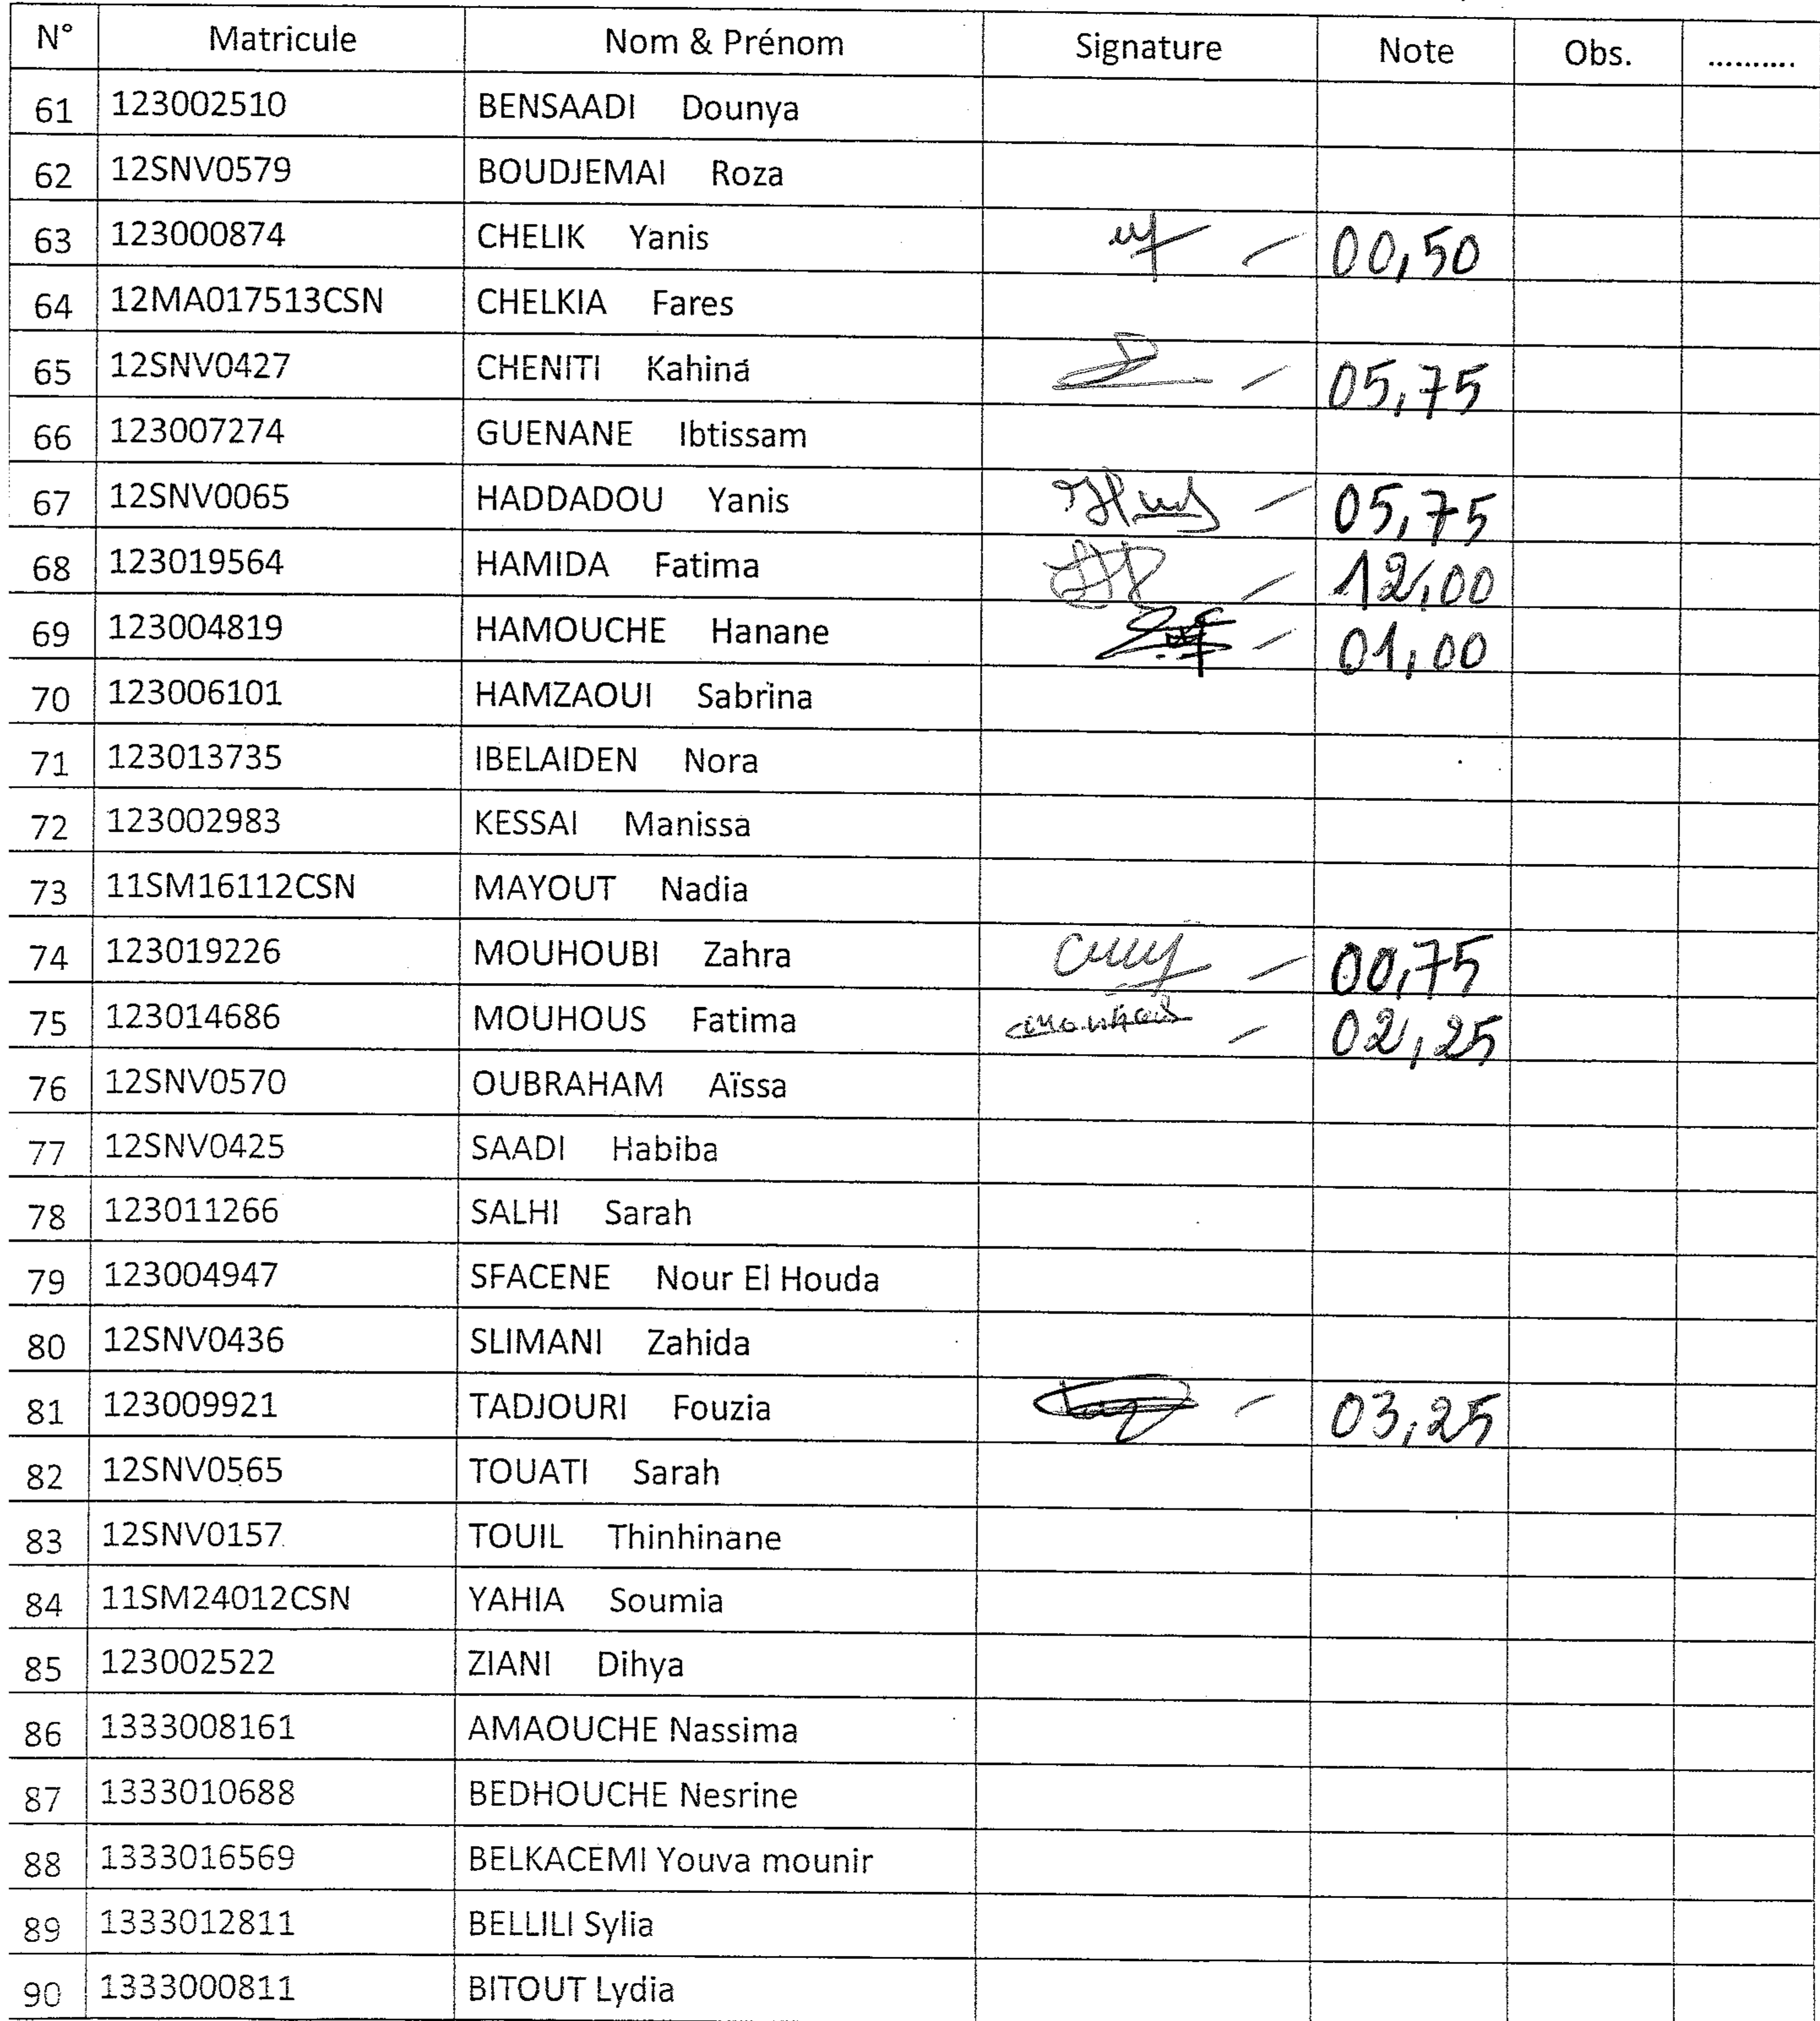 N° Matricule Nom & Prénom Signature Note Obs. ..........
61 123002510 BENSAADI Dounya
62 12SNV0579 BOUDJEMAI Roza
63 123000874 CHELIK Yanis 00,50
64 12MA017513CSN CHELKIA Fares
65 12SNV0427 CHENITI Kahina 05,75
66 123007274 GUENANE Ibtissam
67 12SNV0065 HADDADOU Yanis 05,75
68 123019564 HAMIDA Fatima 12,00
69 123004819 HAMOUCHE Hanane 01,00
70 123006101 HAMZAOUI Sabrina
71 123013735 IBELAIDEN Nora
72 123002983 KESSAI Manissa
73 11SM16112CSN MAYOUT Nadia
74 123019226 MOUHOUBI Zahra 00,75
75 123014686 MOUHOUS Fatima 02,25
76 12SNV0570 OUBRAHAM Aïssa
77 12SNV0425 SAADI Habiba
78 123011266 SALHI Sarah
79 123004947 SFACENE Nour El Houda
80 12SNV0436 SLIMANI Zahida
81 123009921 TADJOURI Fouzia 03,25
82 12SNV0565 TOUATI Sarah
83 12SNV0157 TOUIL Thinhinane
84 11SM24012CSN YAHIA Soumia
85 123002522 ZIANI Dihya
86 1333008161 AMAOUCHE Nassima
87 1333010688 BEDHOUCHE Nesrine
88 1333016569 BELKACEMI Youva mounir
89 1333012811 BELLILI Sylia
90 1333000811 BITOUT Lydia